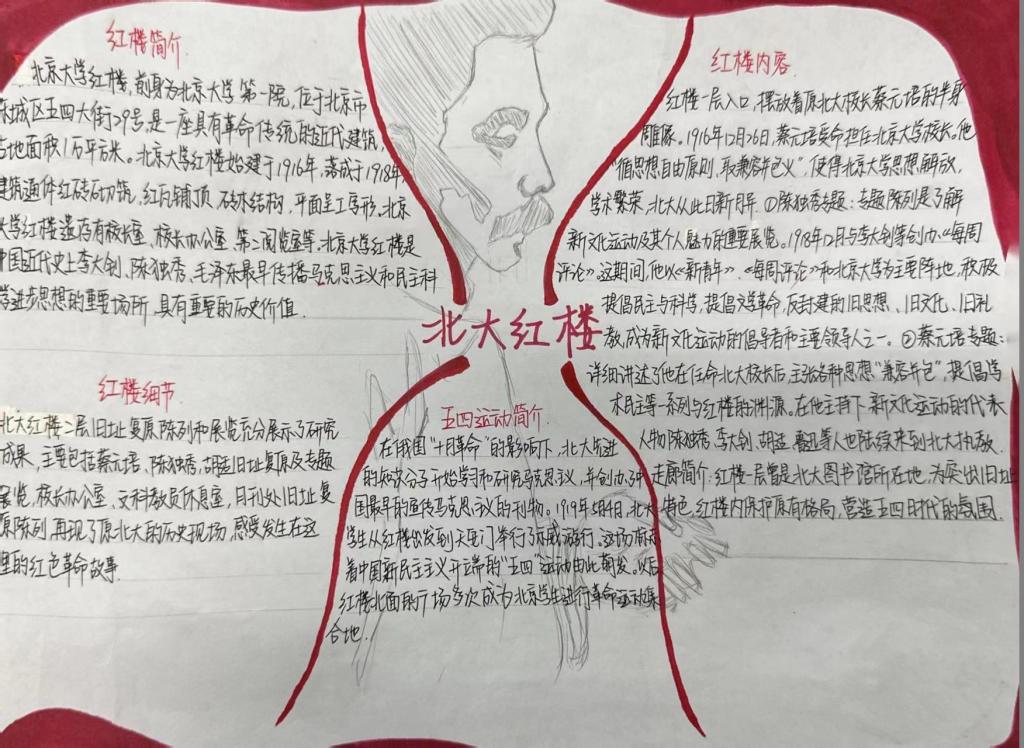 红楼简介
北京大学红楼，前身为北京大学第一院，位于北京市
东城区五四大街29号，是一座具有革命传统的近代建筑，
占地面积1万平方米。北京大学红楼始建于1916年，落成于1918年，
建筑通体红砖砌筑，红瓦铺顶，砖木结构，平面呈工字形，北京
大学红楼遗存有校长室、校长办公室、第二阅览室等。北京大学红楼是
中国近代史上李大钊、陈独秀、毛泽东最早传播马克思主义和民主科
学进步思想的重要场所，具有重要的历史价值.
红楼细节
北大红楼二层旧址复原陈列和展览充分展示了研究
成果，主要包括蔡元培、陈独秀、胡适旧址复原及专题
展览，校长办公室、文科教员休息室，日刊处旧址复
原陈列，再现了原北大的历史现场，感受发生在这
里的红色革命故事.
北大红楼
五四运动简介.
在俄国"十月革命"的影响下，北大先进
的知识分子开始学习和研究马克思主义，并创办了中
国最早的宣传马克思主义的刊物。1919年5月4日，北大
学生从红楼出发到天安门举行了示威游行。这场有
着中国新民主主义开端的"五四"运动由此萌发。以后
红楼北面的广场多次成为北京学生进行革命运动集
合地.
红楼内容.
红楼一层入口，摆放着原北大校长蔡元培的半身
雕像。1916年12月26日，蔡元培受命担任北京大学校长。他
"循思想自由原则，取兼容并包义"，使得北京大学思想解放，
学术繁荣，北大从此日新月异.①陈独秀专题：专题陈列是了解
新文化运动及其个人魅力的重要展览。1918年12月与李大钊等创办《每周
评论》.这期间，他以《新青年》、《每周评论》和北京大学为主要阵地，积极
提倡民主与科学，提倡文学革命，反封建的旧思想、旧文化、旧礼
教，成为新文化运动的倡导者和主要领导人之一。②蔡元培专题：
详细讲述了他在任命北大校长后，主张各种思想"兼容并包"，提倡学
术民主等一系列与红楼的渊源。在他主持下，新文化运动的代表
人物陈独秀、李大钊、胡适、鲁迅等人也陆续来到北大执教.
走廊简介：红楼一层曾是北大图书馆所在地，为突出旧址
特色，红楼内保护原有格局，营造五四时代的氛围.